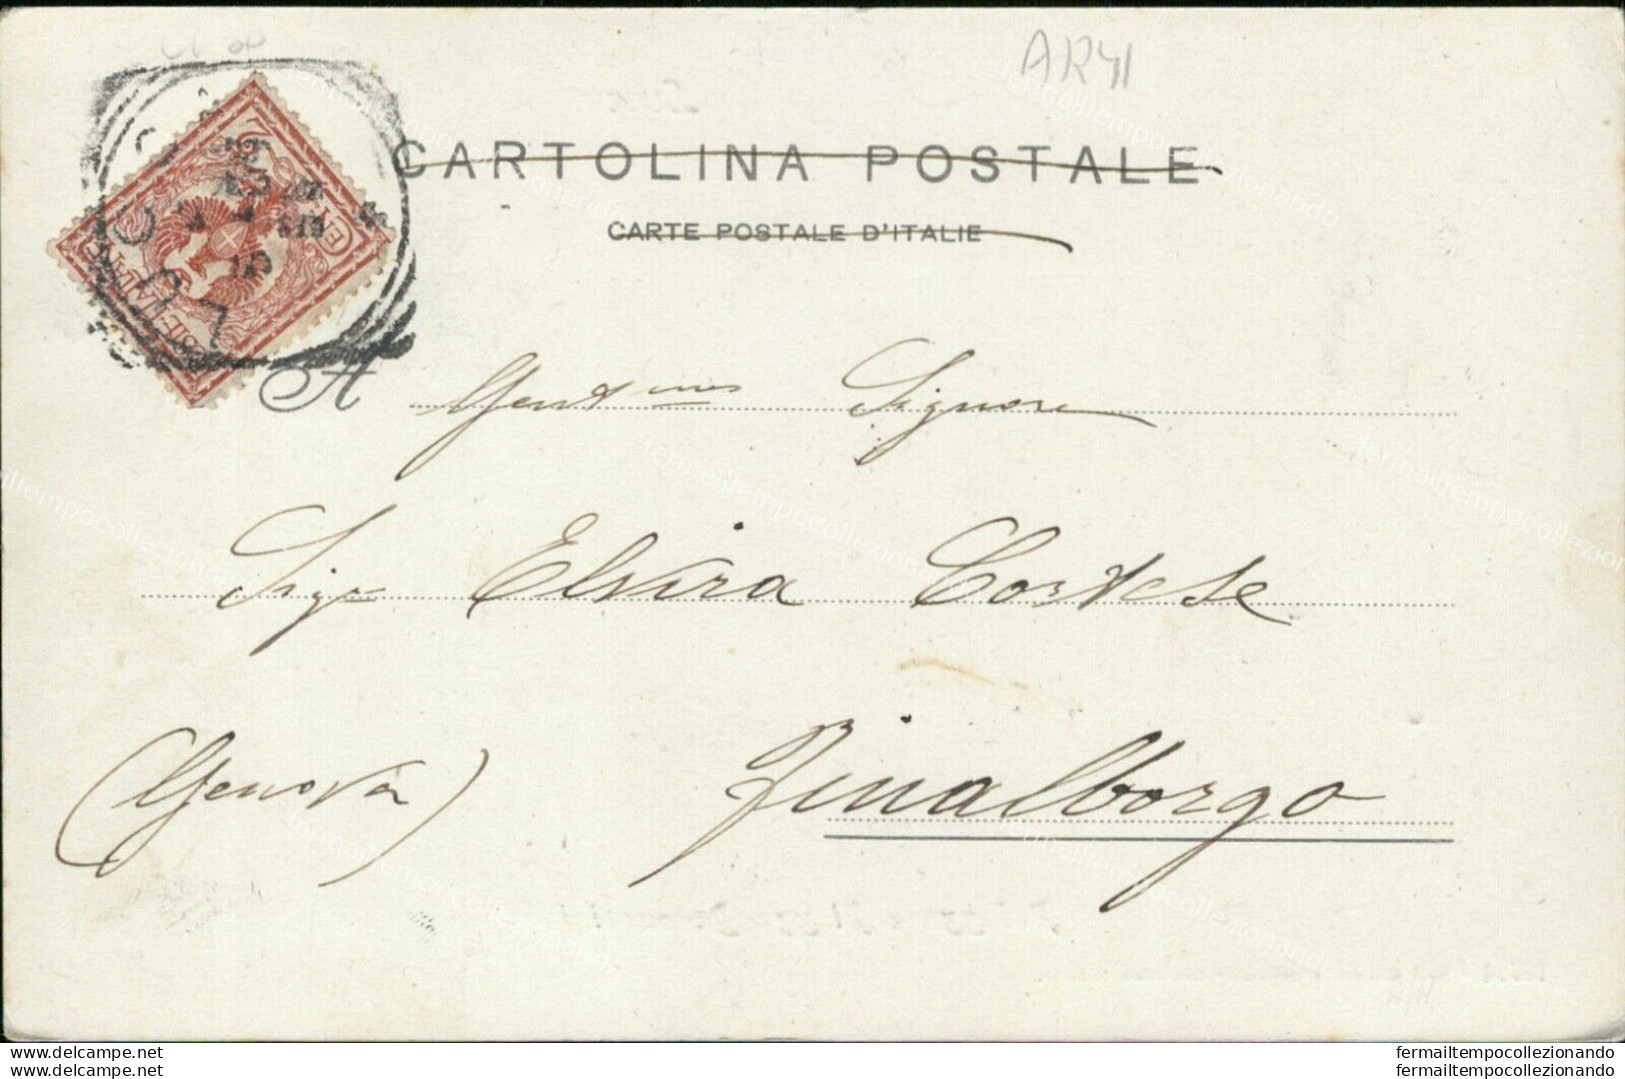 AR41
CARTOLINA POSTALE
CARTE POSTALE D'ITALIE
A Gent.ma Signora
Sig.ra Elvira Cortese
(Genova) Finalborgo
www.delcampe.net
www.delcampe.net
fermailtempocollezionando
fermailtempocollezionando